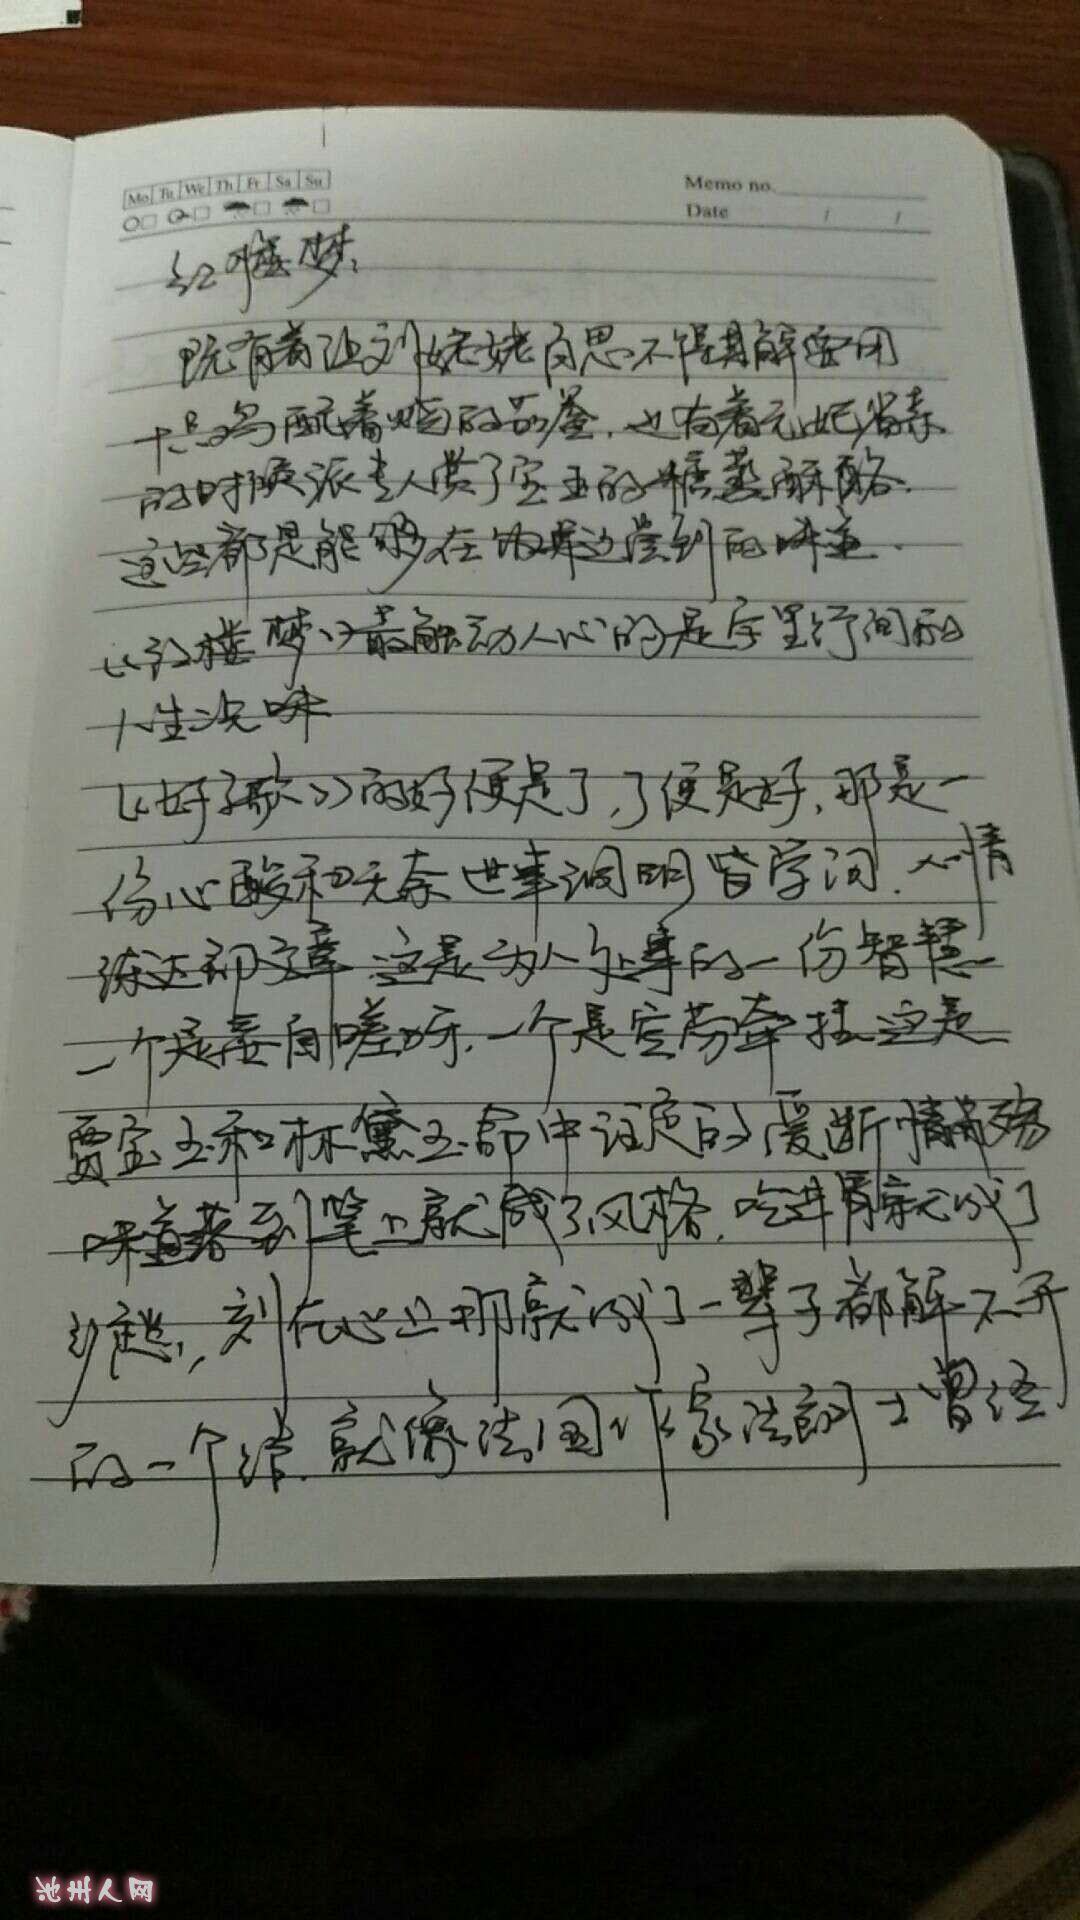 Mo Tu We Th Fr Sa Su
Memo no.
Date / /
红楼梦
既有着让刘姥姥百思不得其解要用
十几只鸡配着烧的茄鲞,也有着元妃省亲
的时候派专人赏了宝玉的糖蒸酥酪.
这些都是能够在饭桌边尝到的味道.
《红楼梦》最触动人心的是字里行间的
人生况味
《好了歌》的好便是了,了便是好,那是一
份心酸和无奈 世事洞明皆学问,人情
练达即文章 这是为人处事的一份智慧
一个是枉自嗟呀,一个是空劳牵挂 这是
贾宝玉和林黛玉命中注定的爱断情殇
味道落到笔上就成了风格,吃进胃就成了
乡愁,刻在心上那就成了一辈子都解不开
的一个结.就像法国作家法朗士曾经
池州人网